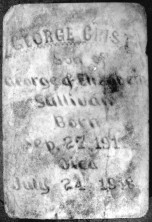 GEORGE
Son of
George & Elizabeth
Sullivan
Born
Sep. 27, 191
Died
July 24, 19